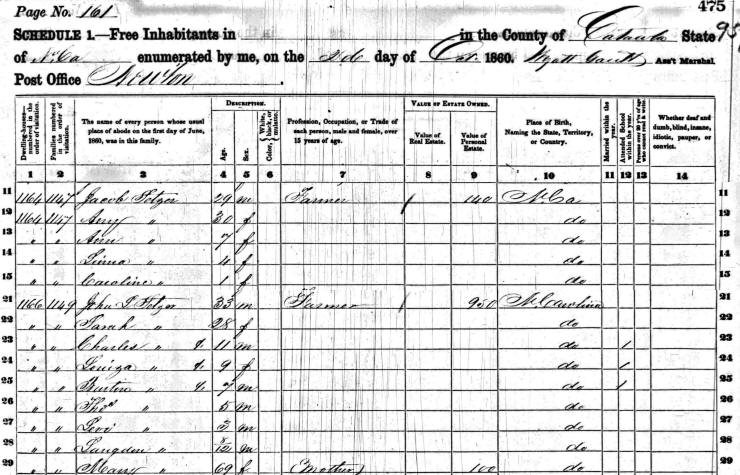 Page No. 161 475
SCHEDULE 1.—Free Inhabitants in in the County of Catawba State
of N. Ca enumerated by me, on the 2d day of Oct 1860. Wyatt Ass't Marshal.
Post Office Newton
Dwelling-houses—numbered in the order of visitation.
Families numbered in the order of visitation.
The name of every person whose usual place of abode on the first day of June, 1860, was in this family.
DESCRIPTION.
Age.
Sex.
Color, White, black, or mulatto.
Profession, Occupation, or Trade of each person, male and female, over 15 years of age.
VALUE OF ESTATE OWNED.
Value of Real Estate.
Value of Personal Estate.
Place of Birth, Naming the State, Territory, or Country.
Married within the year.
Attended School within the year.
Persons over 20 y'rs of age who cannot read & write.
Whether deaf and dumb, blind, insane, idiotic, pauper, or convict.
1 2 3 4 5 6 7 8 9 10 11 12 13 14
11 1164 1147 Jacob 29 m Farmer / 140 N. Ca 11
12 1164 1147 Amy " 30 f do 12
13 " " Ann " 7 f do 13
14 " " " 4 f do 14
15 " " Caroline " 1 f do 15
21 1166 1149 John 33 m Farmer / 950 N. Carolina 21
22 " " Sarah " 28 f do 22
23 " " Charles " 11 m do 1 23
24 " " Louiza " 9 f do 1 24
25 " " Burton " 7 m do 1 25
26 " " Thos " 5 m do 26
27 " " Levi " 3 m do 27
28 " " Langdon " 8/12 m do 28
29 " " Mary " 69 f (Mother) 100 do 29